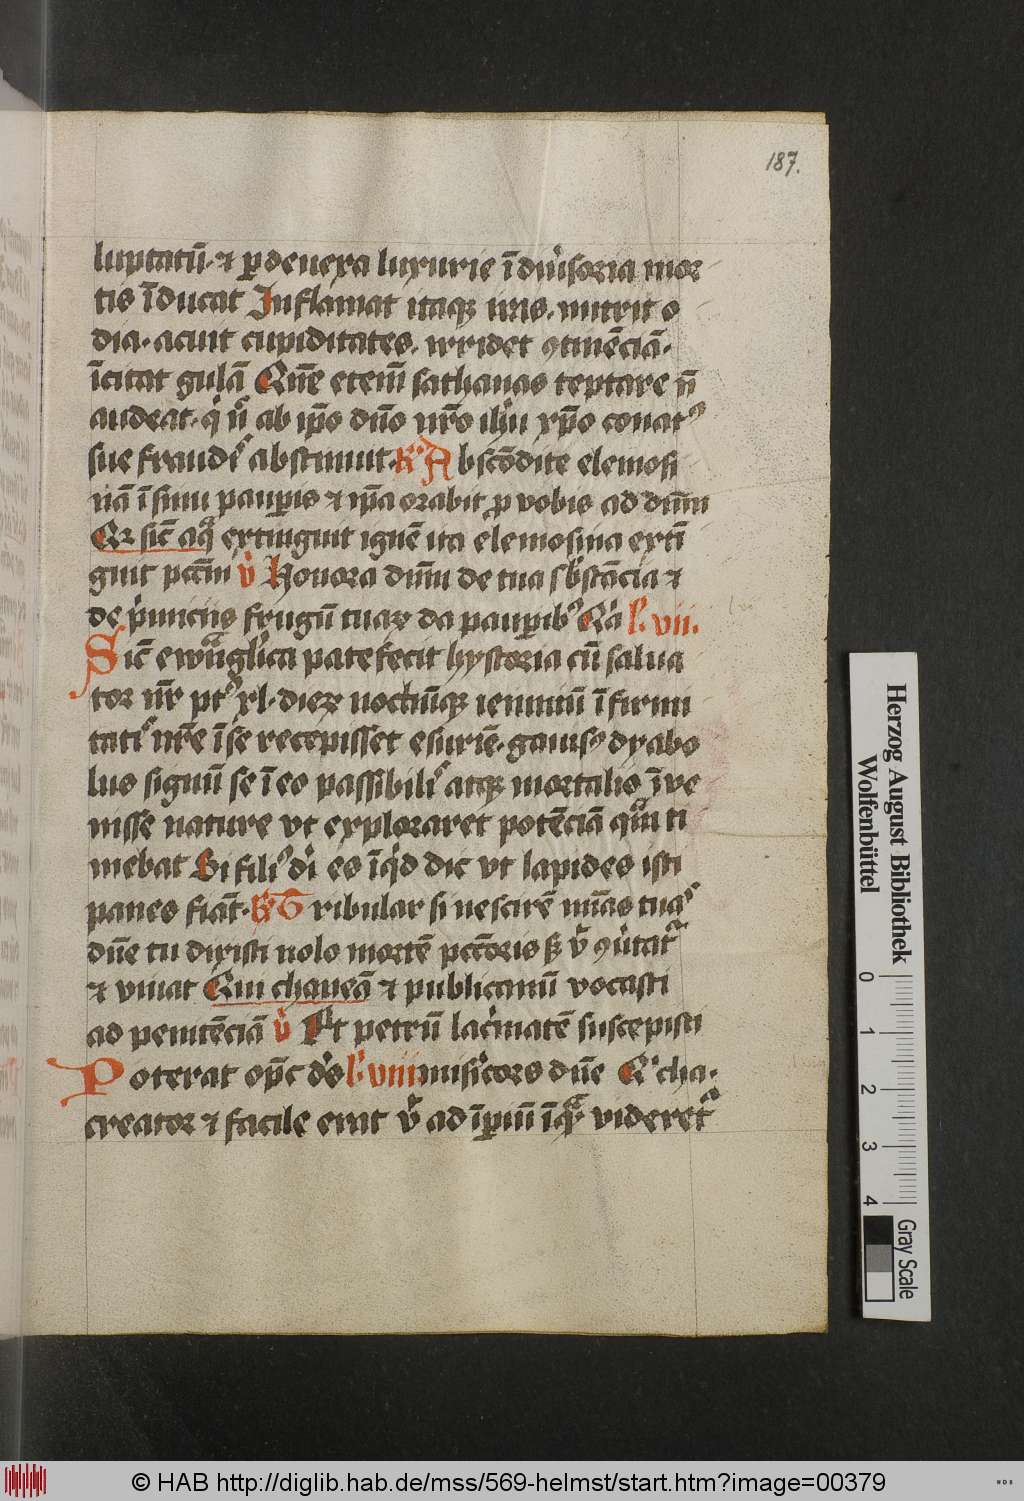 187.
luptatū· ⁊ ꝑ deuexa luxurie ī diu̾soria mor
tis īducat Inflamat itaqꝫ iras· nutrit o
dia· acuit cupiditates· irridet ꝯtinēciā·
īcitat gulā Que̅ etem̄ sathanas teptare n̄
audeat· qͥ n̄ ab ip̄o dn̄o nr̄o ih̄u xp̄o conatꝰ
sue fraudꝭ abstinuit· R̷ Abscōdite elemosi
nā ī sinu pauꝑis ⁊ ip̄a orabit ꝓ vobis ad dn̄m
Qr sic̄ aqͣ extinguit ignē ita elemosina extī
guit pcc̄m v̾ Honora dn̄m de tua sb̾stācia ⁊
de p̾miciis frugū tuaꝝ da pauꝑibꝰ Qͥa l̾ vii·
Sic̄ ewāgl̾ica patefecit hystoria cū salua
tor nr̄ ptꝰ xl· dieꝝ noctiūqꝫ ieiuniū ī firmi
tatꝭ nr̄e ī se recepisset esuriē· gauisꝰ dyabo
lus signū se ī eo passibilꝭ atqꝫ mortalis īve
nisse nature vt exploraret potēciā quā ti
mebat Si filiꝰ di̾ es īqͥd dic vt lapides isti
panes fiāt· R̷ Tribular si nescirē mīas tuaꝭ
dn̄e tu dixisti nolo mortē pcc̄oris sꝫ v̾ ꝯu̾tatͬ
⁊ viuat Qui chaneā ⁊ publicanū vocasti
ad penitēciā v̾ Et petrū lac̾matē suscepisti
Poterat op̄c ds̄ l̾ viii misic̾ors dn̄e Qͥ cha·
creator ⁊ facile erat v̾ ad īꝑiū īqͣ videretͬ
Herzog August Bibliothek
Wolfenbüttel
0 1 2 3 4
Gray Scale
© HAB http://diglib.hab.de/mss/569-helmst/start.htm?image=00379